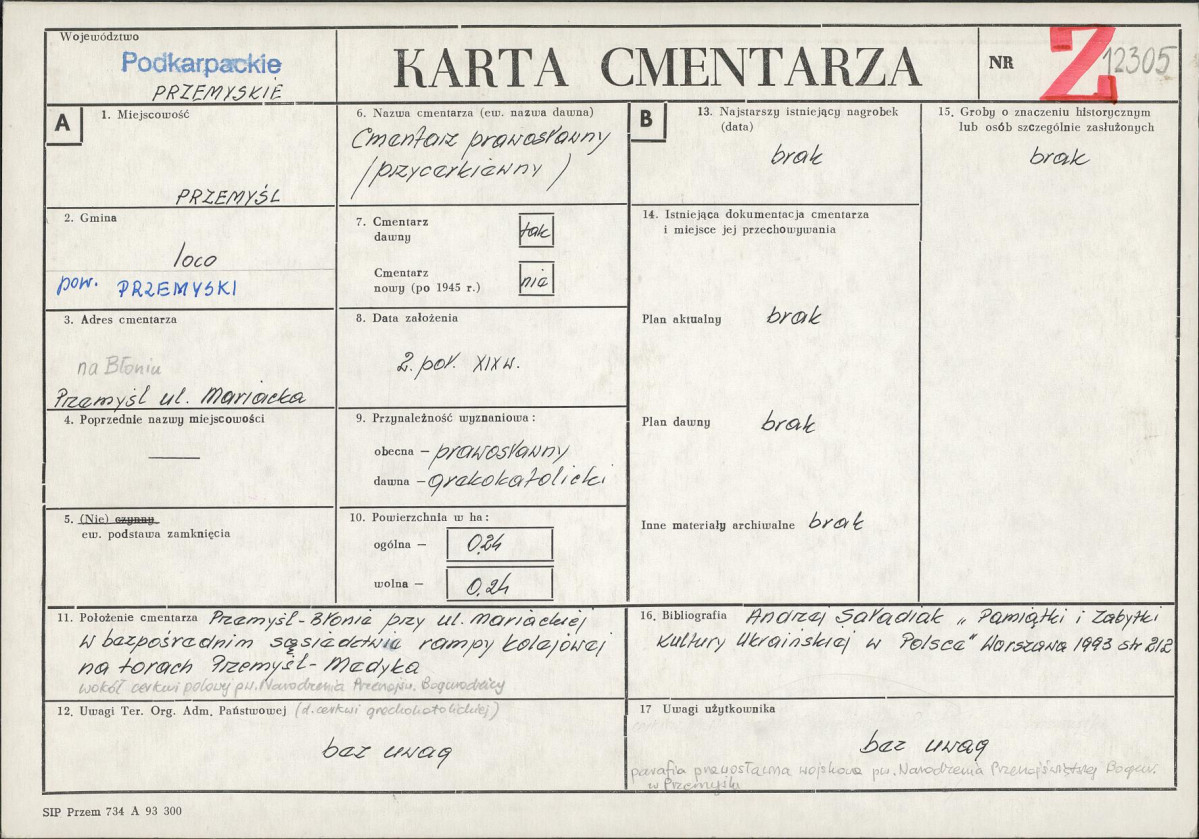 Województwo
Podkarpackie
PRZEMYSKIE
KARTA CMENTARZA
NR
Z 12305
A
1. Miejscowość
PRZEMYŚL
2. Gmina
loco
pow. PRZEMYSKI
3. Adres cmentarza
na Błoniu
Przemyśl ul. Mariacka
4. Poprzednie nazwy miejscowości
—
5. (Nie) czynny
ew. podstawa zamknięcia
6. Nazwa cmentarza (ew. nazwa dawna)
Cmentarz prawosławny
(przycerkiewny)
7. Cmentarz
dawny
tak
Cmentarz
nowy (po 1945 r.)
nie
8. Data założenia
2. poł. XIX w.
9. Przynależność wyznaniowa:
obecna – prawosławny
dawna – grekokatolicki
10. Powierzchnia w ha:
ogólna – 0.24
wolna – 0.24
B
13. Najstarszy istniejący nagrobek
(data)
brak
14. Istniejąca dokumentacja cmentarza
i miejsce jej przechowywania
Plan aktualny brak
Plan dawny brak
Inne materiały archiwalne brak
15. Groby o znaczeniu historycznym
lub osób szczególnie zasłużonych
brak
11. Położenie cmentarza Przemyśl-Błonie przy ul. Mariackiej
w bezpośrednim sąsiedztwie rampy kolejowej
na torach Przemyśl-Medyka
wokół cerkwi polowej pw. Narodzenia Przenajśw. Bogurodzicy
(d. cerkwi grechokatolickiej)
12. Uwagi Ter. Org. Adm. Państwowej
bez uwag
16. Bibliografia Andrzej Saładiak „Pamiątki i Zabytki
Kultury Ukraińskiej w Polsce" Warszawa 1993 str 212
17 Uwagi użytkownika
bez uwag
parafia prawosławna wojskowa pw. Narodzenia Przenajświętszej Bogur.
w Przemyślu
SIP Przem 734 A 93 300